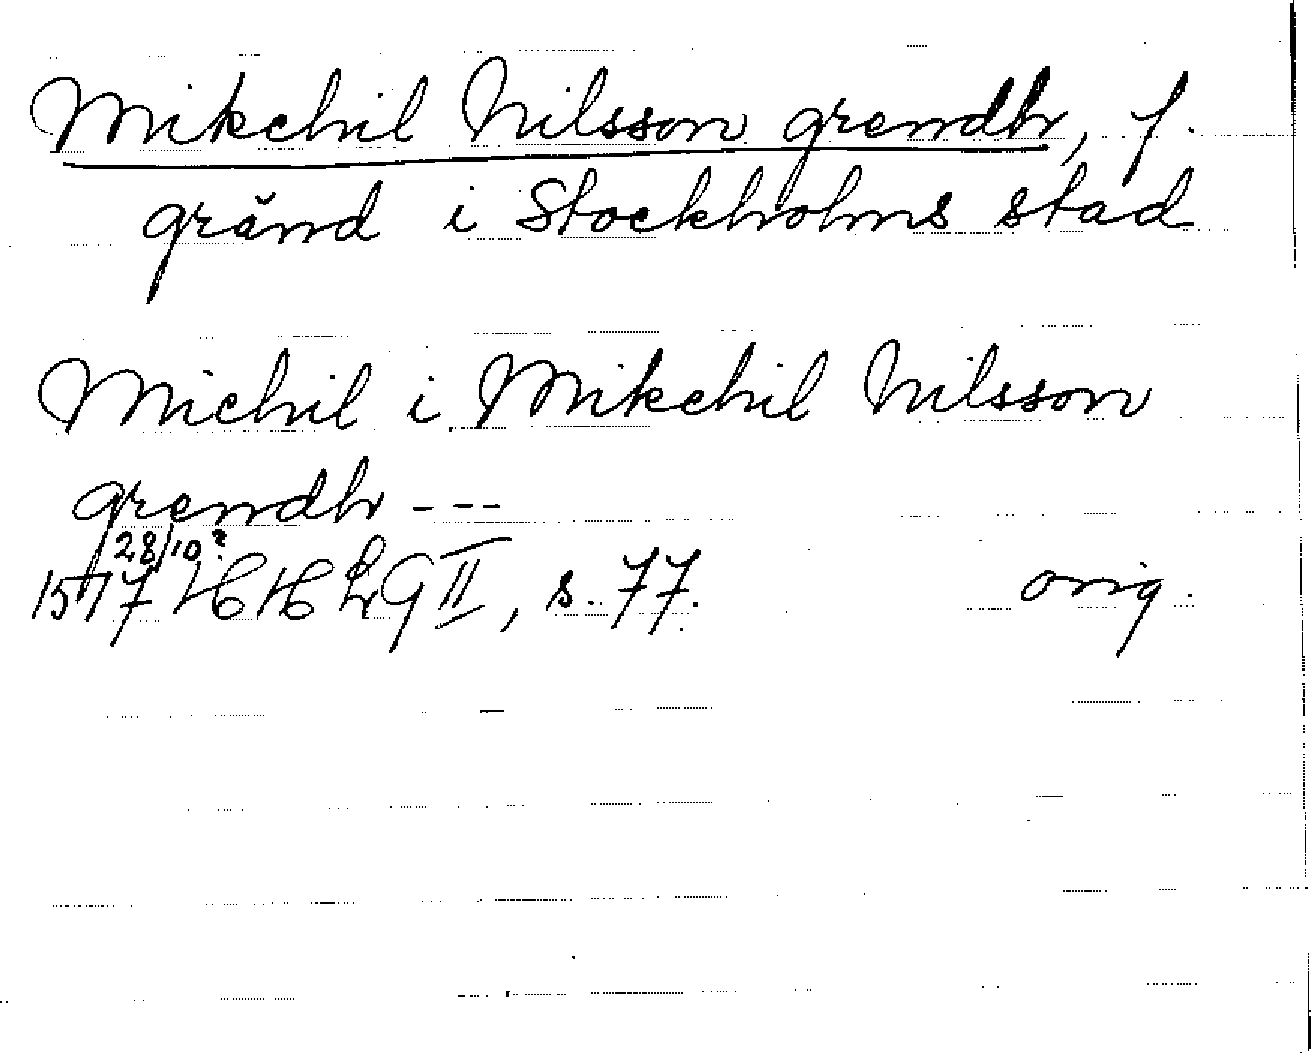 Mikchil Nilsson grendh, f.
gränd i Stockholms stad
Michil i Mikchil Nilsson
grendh ---
28/10?
1517 HH LG II, s. 77. orig.